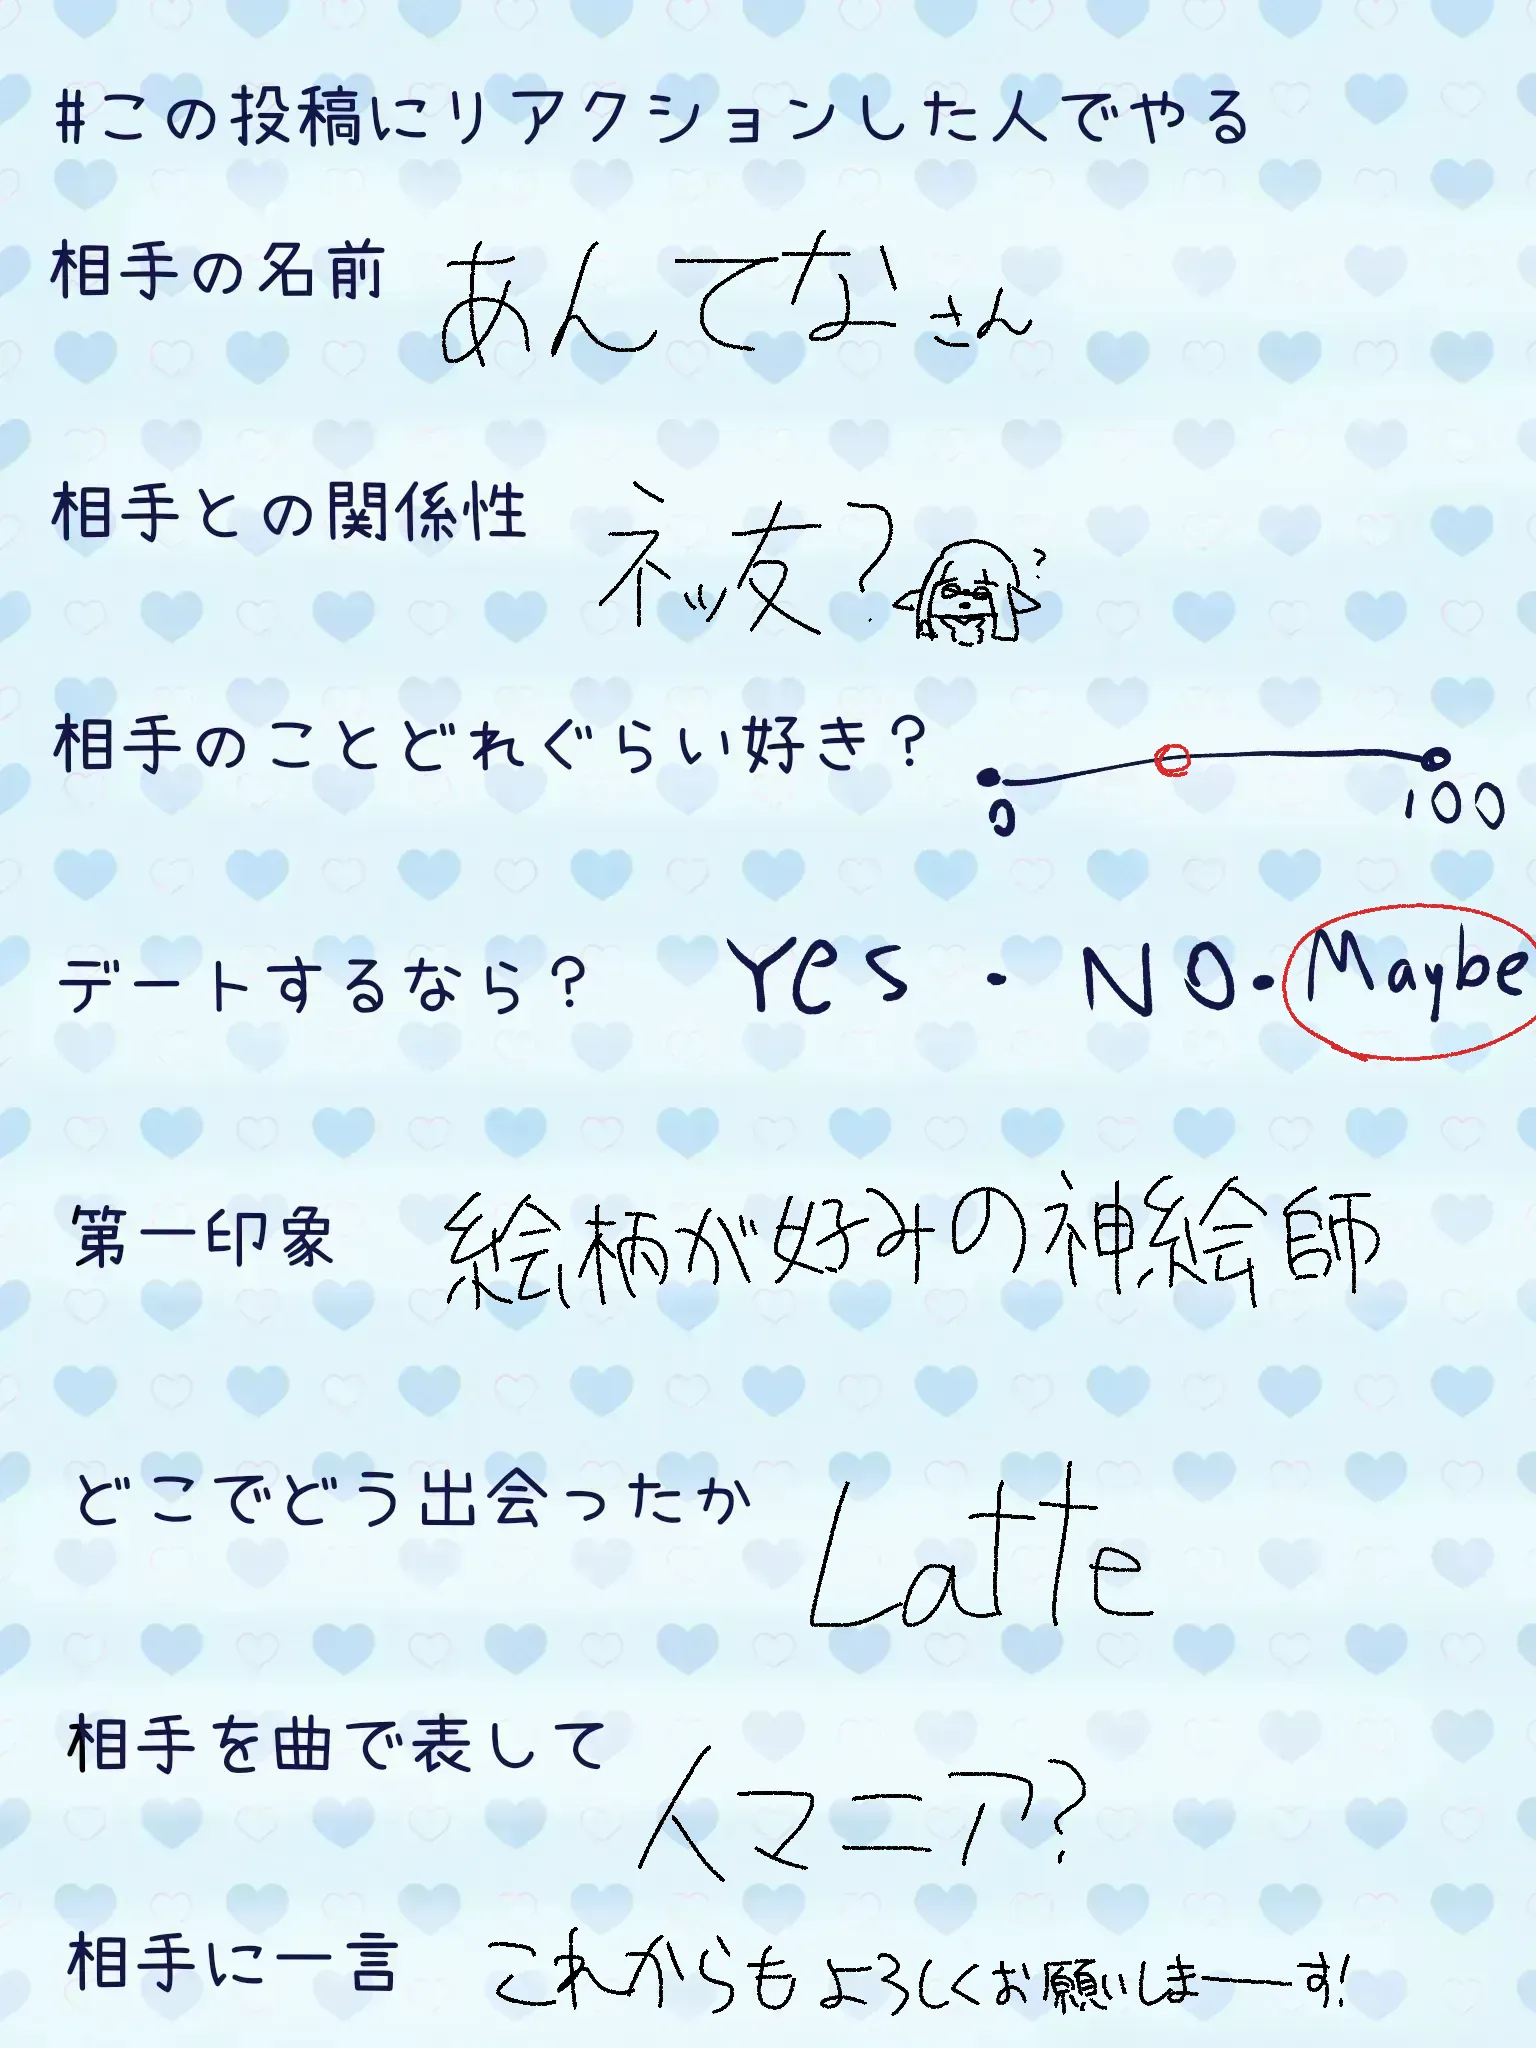 #この投稿にリアクションした人でやる
相手の名前 あんてなさん
相手との関係性 ネッ友? ?
相手のことどれぐらい好き? 0 100
デートするなら? Yes・NO・Maybe
第一印象 絵柄が好みの神絵師
どこでどう出会ったか Latte
相手を曲で表して 人マニア?
相手に一言 これからもよろしくお願いしまーす!